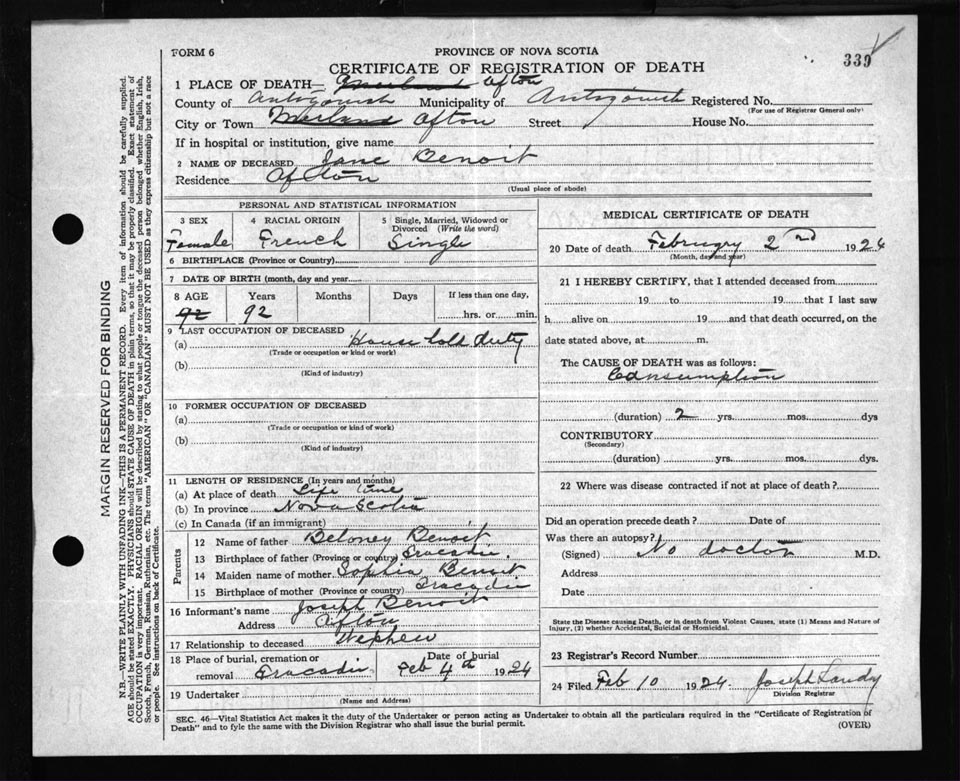 FORM 6
PROVINCE OF NOVA SCOTIA
339
CERTIFICATE OF REGISTRATION OF DEATH
1 PLACE OF DEATH— Afton
County of Antigonish Municipality of Antigonish Registered No.
(For use of Registrar General only)
City or Town Afton Street House No.
If in hospital or institution, give name
2 NAME OF DECEASED Jane Benoit
Residence Afton
(Usual place of abode)
PERSONAL AND STATISTICAL INFORMATION
3 SEX 4 RACIAL ORIGIN 5 Single, Married, Widowed or Divorced (Write the word)
Female French Single
6 BIRTHPLACE (Province or Country)
7 DATE OF BIRTH (month, day and year)
8 AGE Years Months Days If less than one day,
92 92 hrs. or min.
9 LAST OCCUPATION OF DECEASED
(a) House hold duty
(Trade or occupation or kind or work)
(b)
(Kind of industry)
10 FORMER OCCUPATION OF DECEASED
(a)
(Trade or occupation or kind of work)
(b)
(Kind of industry)
11 LENGTH OF RESIDENCE (In years and months)
(a) At place of death Life time
(b) In province Nova Scotia
(c) In Canada (if an immigrant)
Parents
12 Name of father Beloney Benoit
13 Birthplace of father (Province or country) Tracadie
14 Maiden name of mother Sophia Benoit
15 Birthplace of mother (Province or country) Tracadie
16 Informant's name Joseph Benoit
Address Afton
17 Relationship to deceased Nephew
18 Place of burial, cremation or removal Tracadie Date of burial Feb 4th 1924
19 Undertaker
(Name and Address)
MEDICAL CERTIFICATE OF DEATH
20 Date of death February 2nd 1924
(Month, day and year)
21 I HEREBY CERTIFY, that I attended deceased from
19 to 19 that I last saw
h alive on 19 and that death occurred, on the
date stated above, at m.
The CAUSE OF DEATH was as follows:
Consumption
(duration) 2 yrs. mos. dys
CONTRIBUTORY
(Secondary)
(duration) yrs. mos. dys.
22 Where was disease contracted if not at place of death?
Did an operation precede death? Date of
Was there an autopsy?
(Signed) No doctor M.D.
Address
Date
State the Disease causing Death, or in death from Violent Causes, state (1) Means and Nature of
Injury, (2) whether Accidental, Suicidal or Homicidal.
23 Registrar's Record Number
24 Filed Feb 10 1924 Joseph Landry
Division Registrar
SEC. 46—Vital Statistics Act makes it the duty of the Undertaker or person acting as Undertaker to obtain all the particulars required in the "Certificate of Registration of
Death" and to fyle the same with the Division Registrar who shall issue the burial permit.
(OVER)
MARGIN RESERVED FOR BINDING
N.B.—WRITE PLAINLY WITH UNFADING INK—THIS IS A PERMANENT RECORD. Every item of information should be carefully supplied.
AGE should be stated EXACTLY. PHYSICIANS should STATE CAUSE OF DEATH in plain terms, so that it may be properly classified. Exact statement of
OCCUPATION is very important. RACIAL ORIGIN will be described by stating to what people or tongue the deceased person belonged whether English, Irish,
Scotch, French, German, Russian, Ruthenian, etc. The terms "AMERICAN" OR "CANADIAN" MUST NOT BE USED as they express citizenship but not a race
or people. See instructions on back of Certificate.